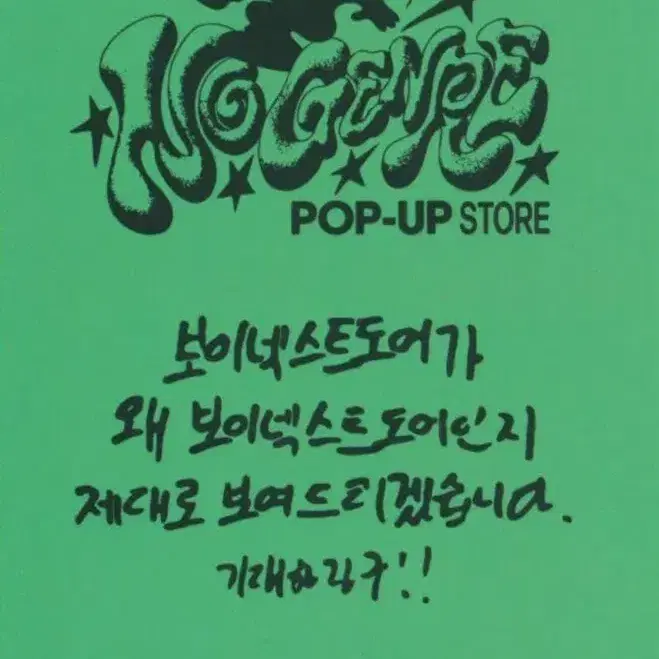 NO GENRE
POP-UP STORE
보이넥스트도어가
왜 보이넥스트도어인지
제대로 보여드리겠습니다.